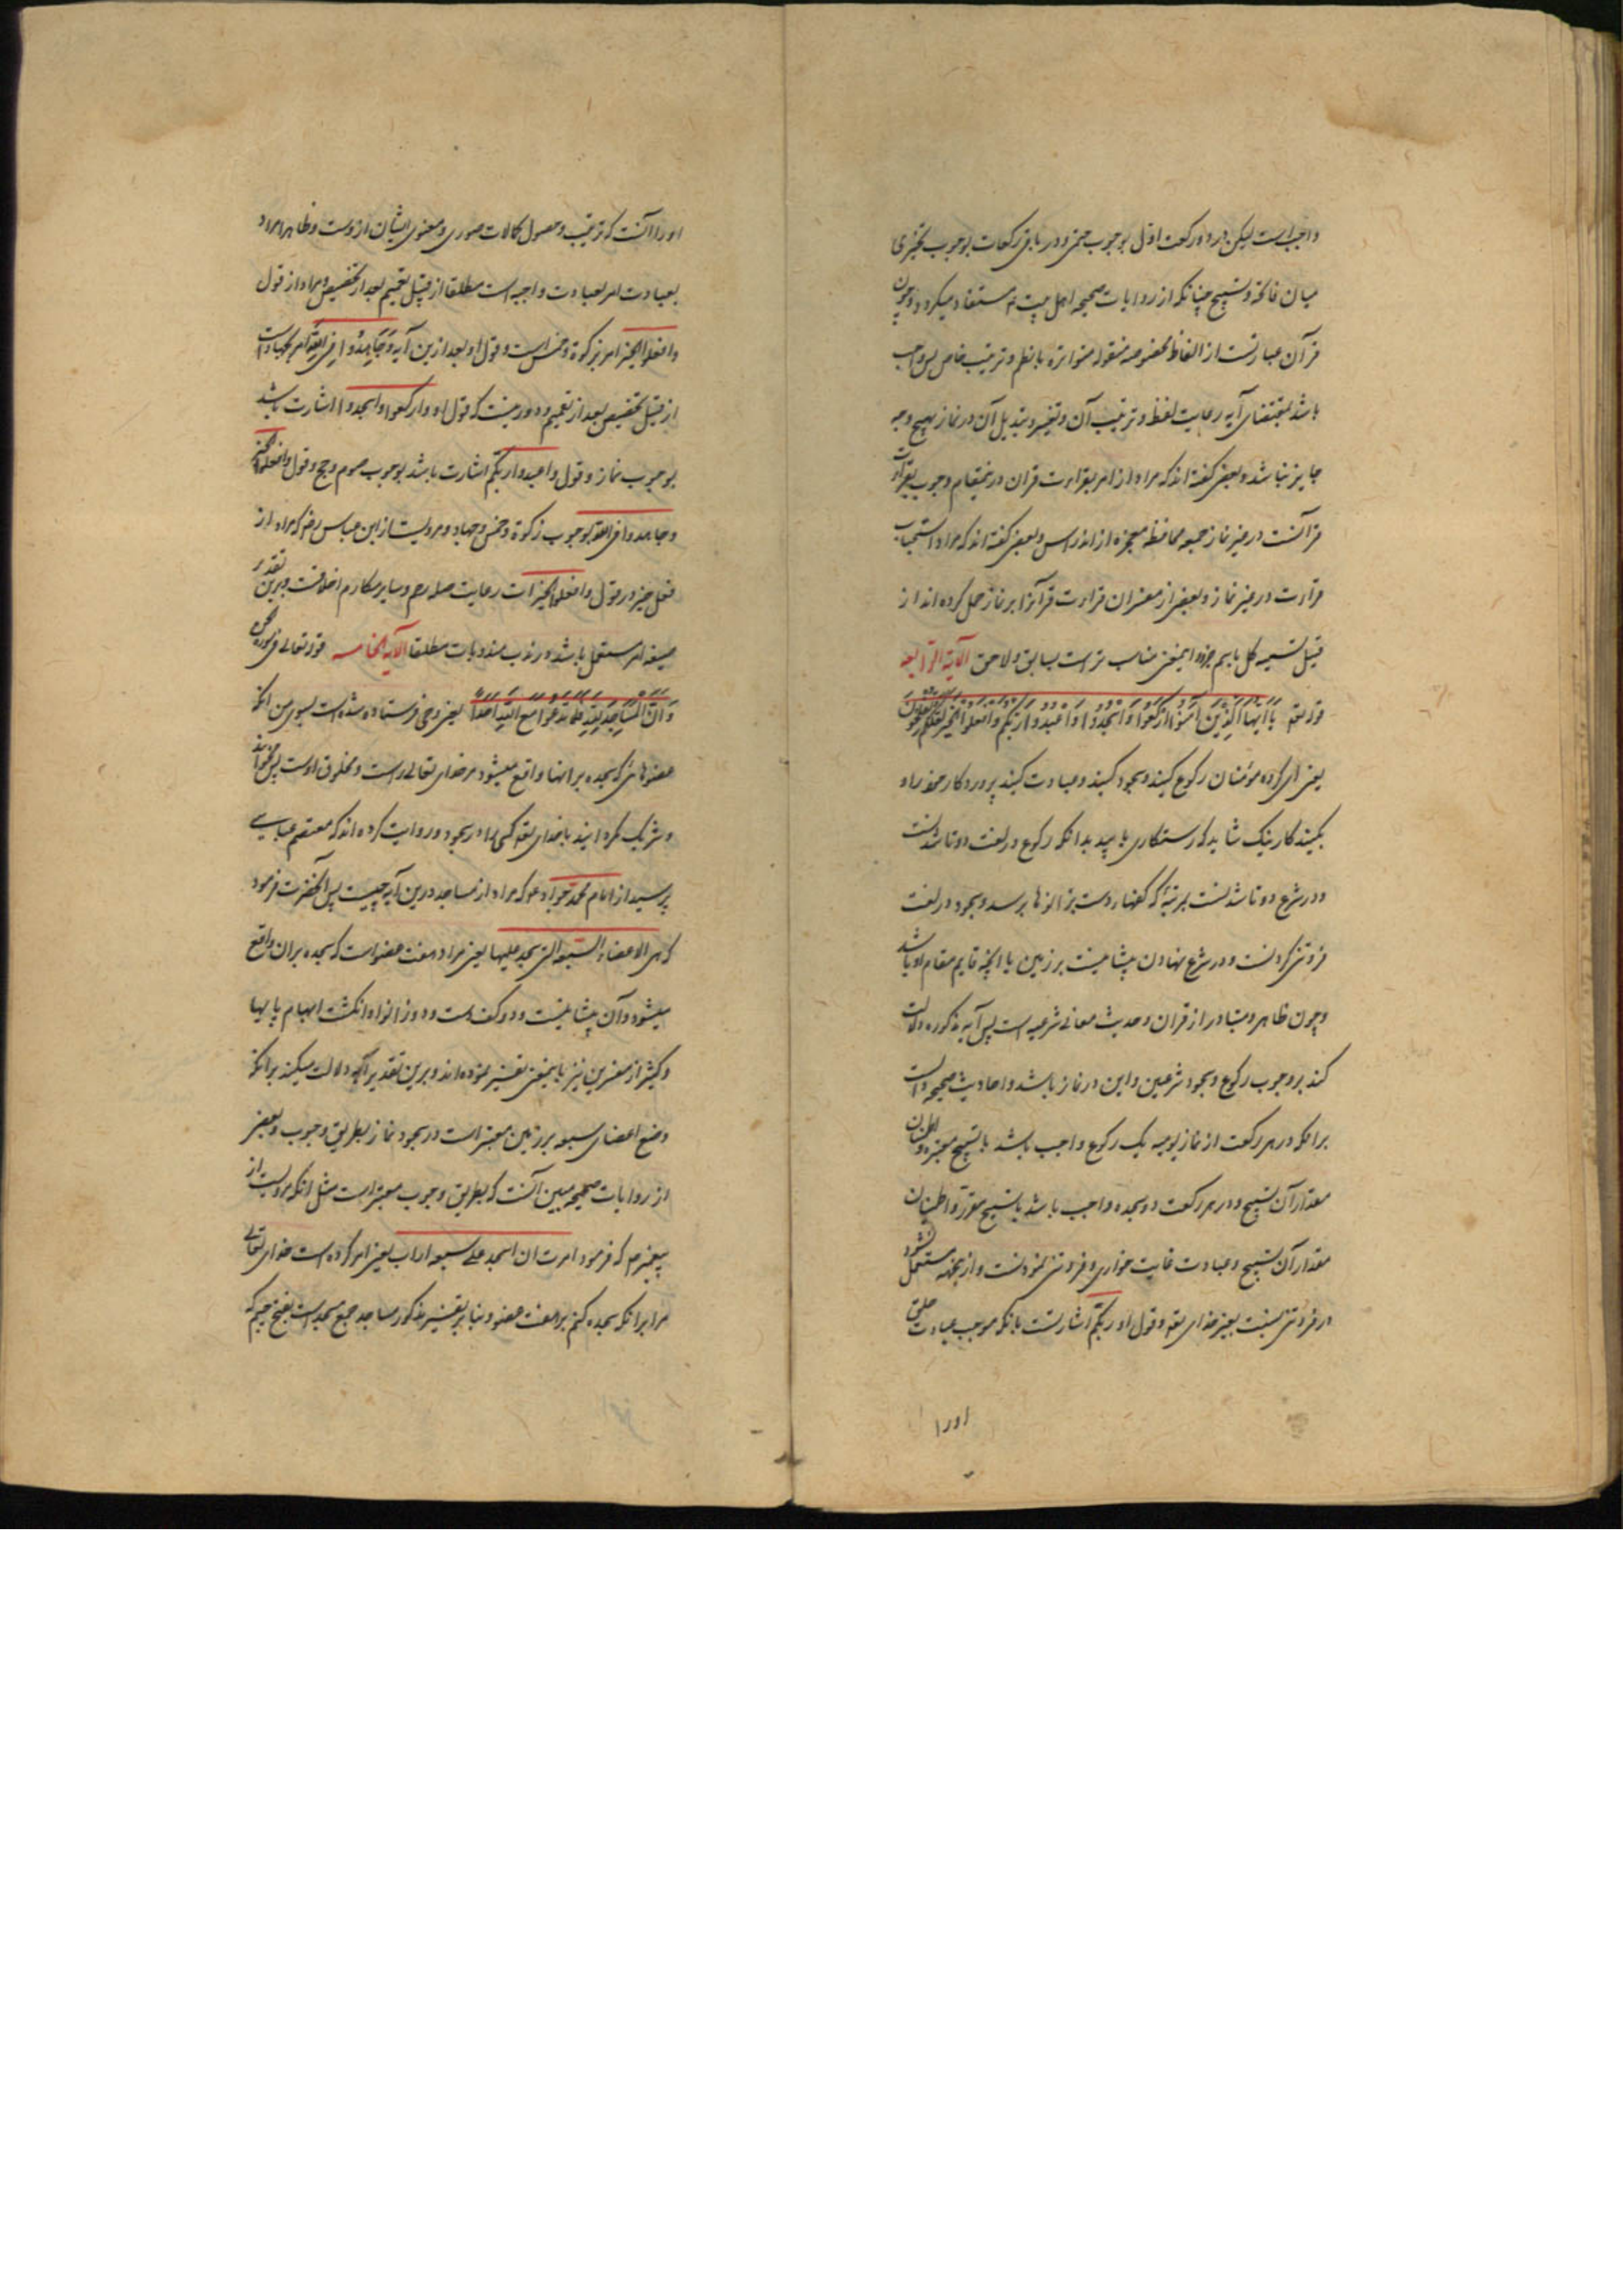 واجب است لیکن در دو رکعت اول بوجوب حتمی و در باقی رکعات بوجوب تخییری
میان فاتحه و تسبیح چنانکه از روایات صحیحه اهل بیت ع م مستفاد میکردد و چون
قرآن عبارتست از الفاظ مخصوصه منقوله متواتره با نظم و ترتیب خاص پس واجب
باشد بمقتضای آیه رعایت لفظ و ترتیب آن و تغییر و تبدیل آن در نماز بهیچ وجه
جایز نباشد و بعضی کفته اند که مراد از امر بقراءت قران درینمقام وجوب قراءت
قرآنست در غیر نماز جهه محافظه معجزه از اندراس و بعضی کفته اند که مراد استحباب
قراءت در غیر نماز و بعضی از مفسران قراءت قرآنرا بر نماز حمل کرده اند از
قبیل تسمیه کل باسم جزء و اینمعنی مناسب تر است بسابق و لاحق الآیة الرابعة
قوله تعه یَا اَیُّهَا الَّذِینَ اٰمَنُوا ارْکَعُوا وَاسْجُدُوا وَاعْبُدُوا رَبَّکُمْ وَافْعَلُوا الْخَیْرَ لَعَلَّکُمْ تُفْلِحُونَ
یعنی ای کروه مؤمنان رکوع کنید و سجود کنید و عبادت کنید پروردکار خود را و
بکنید کار نیک شاید که رستکاری یابید بدانکه رکوع در لغت دوتا شدنست
و در شرع دوتا شدنست بمرتبهٔ که کفهاء دست بزانوها برسد و سجود در لغت
فروتنی کردنست و در شرع نهادن پیشانیست بر زمین یا انچه قایم مقام او باشد
و چون ظاهر و متبادر از قران و حدیث معانی شرعیه است پس آیه مذکوره دلالت
کند بر وجوب رکوع و سجود شرعیین و این در نماز باشد و احادیث صحیحه دالست
برانکه در هر رکعت از نماز یومیه یک رکوع واجب باشد با تسبیح معتبره و اطمینان
مقدار آن تسبیح و در هر رکعت دو سجده واجب باشد با تسبیح مقرره و اطمینان
مقدار آن تسبیح و عبادت غایت خواری و فروتنی نمودنست و ازینجهه مستعمل نشود
در فروتنی نسبت بغیر خدای تعه و قول او ربکم اشارتست بانکه موجب عبادت خلق
اورا
اورا آنست که تربیت و حصول کمالات صوری و معنوی ایشان ازوست و ظاهرا مراد
بعبادت امر بعبادت واجبه است مطلقا از قبیل تعمیم بعد از تخصیص و مراد از قول
وافعلوا الخیر امر بزکوة و خمس است و قول او بعد ازین آیه وَجَاهِدُوا فِی اللّٰهِ امر بجهاد است
از قبیل تخصیص بعد از تعمیم و دور نیست که قول او وارکعوا واسجدوا اشارت باشد
بوجوب نماز و قول واعبدوا ربکم اشارت باشد بوجوب صوم و حج و قول وافعلوا الخیر
وجاهدوا فی الله بوجوب زکوة و خمس و جهاد و مرویست از ابن عباس رض که مراد از
فعل خیر در قول وافعلوا الخیرات رعایت صله رحم و سایر مکارم اخلاقست و برین تقدیر
صیغه امر مستعمل باشد در ندب مندوبات مطلقا الآیة الخامسه قوله تعالی فی سورة الجن
وَاَنَّ الْمَسَاجِدَ لِلّٰهِ فَلَا تَدْعُوا مَعَ اللّٰهِ اَحَدًا یعنی وحی فرستاده شده است بسوی من انکه
عضوهائی که سجده برانها واقع میشود مر خدای تعالی راست و مخلوق اوست پس مخوانید
و شریک مکردانید با خدای تعه کسی را در سجود و روایت کرده اند که معتصم عباسی
پرسید از امام محمد جواد ع م که مراد از مساجد درین آیه چیست پس آنحضرت فرمود
که هی الاعضاء السبعة التی یسجد علیها یعنی مراد هفت عضو است که سجده بران واقع
میشود و آن پیشانیست و دو کف دست و دو زانو و دو انکشت ابهام پایها
و کثیر از مفسرین نیز باینمعنی تفسیر نموده اند و برین تقدیر آیه دلالت میکند برانکه
وضع اعضای سبعه بر زمین معتبر است در سجود نماز بطریق وجوب و بعضی
از روایات صحیحه مبین آنست که بطریق وجوب معتبر است مثل انکه مرویست از
پیغمبر ص م که فرمود امرت ان اسجد علی سبعه اراب یعنی امر کرده است خدای تعالی
مرا برانکه سجده کنم بر هفت عضو و بنا بر تفسیر مذکور مساجد جمع مسجد است بفتح جیم که